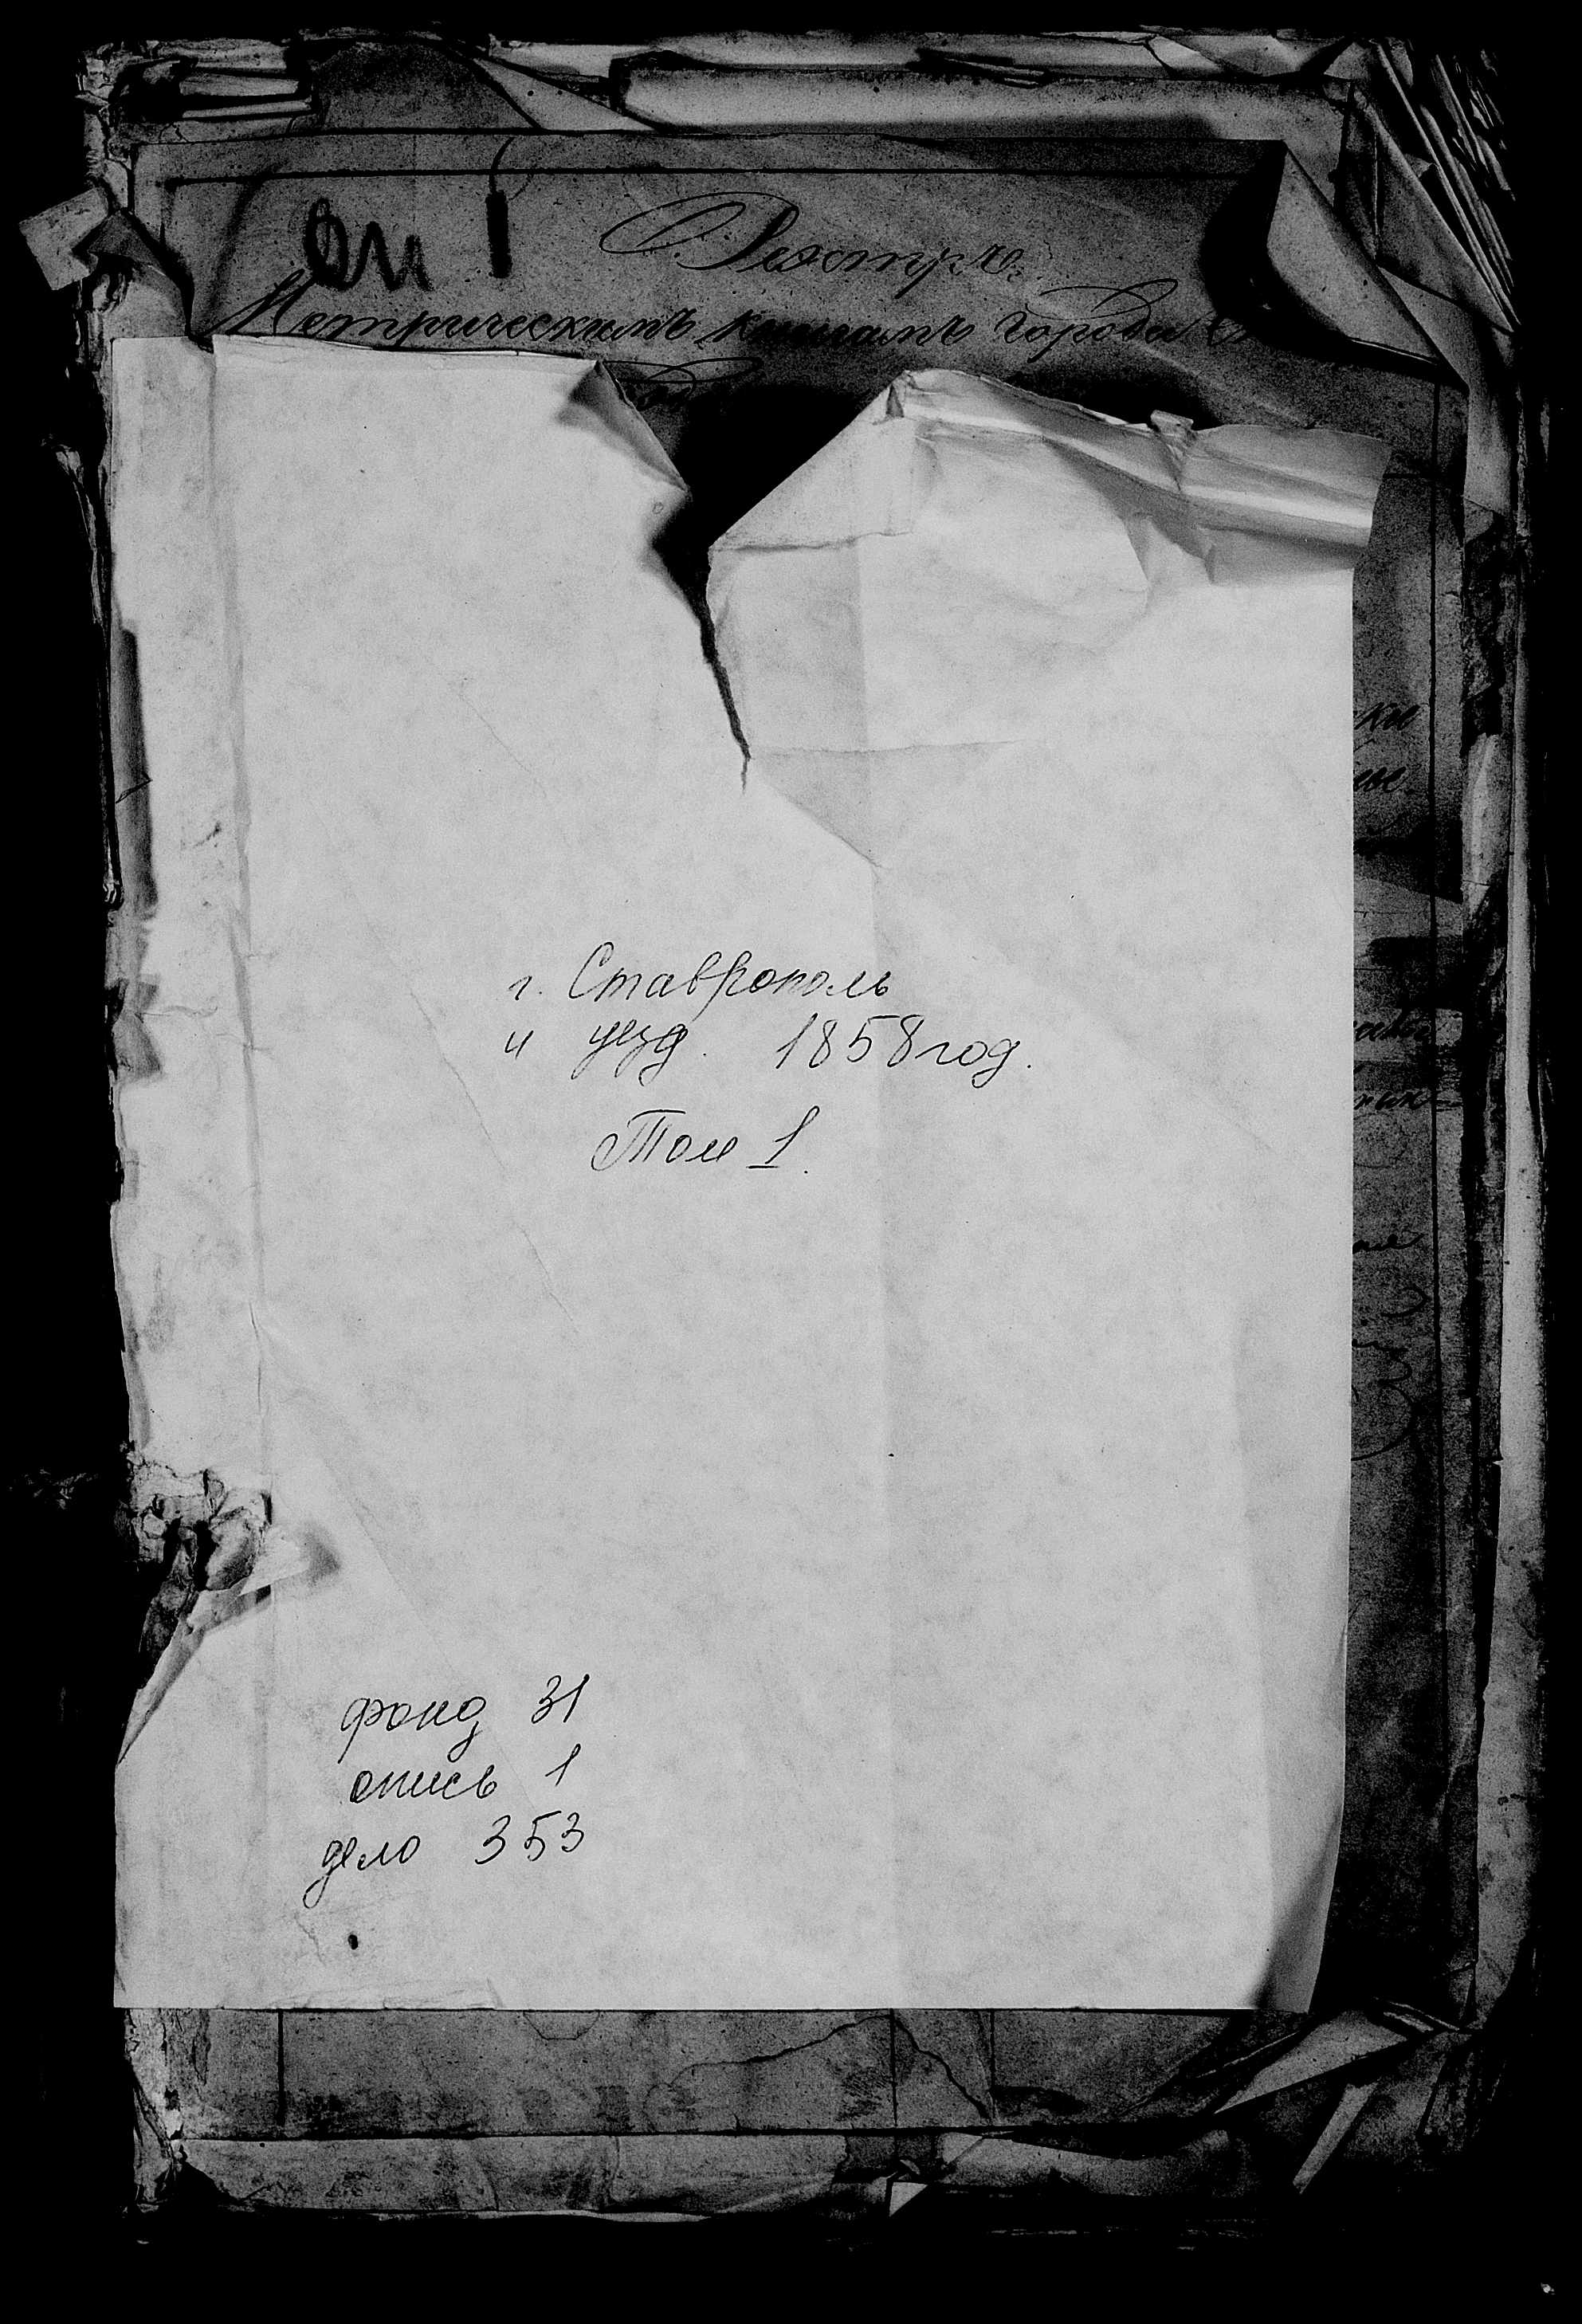 Реэстръ
Метрическимъ книгамъ города
г. Ставрополь
и уезд. 1858 год.
Том 1.
фонд 31
опись 1
дело 353